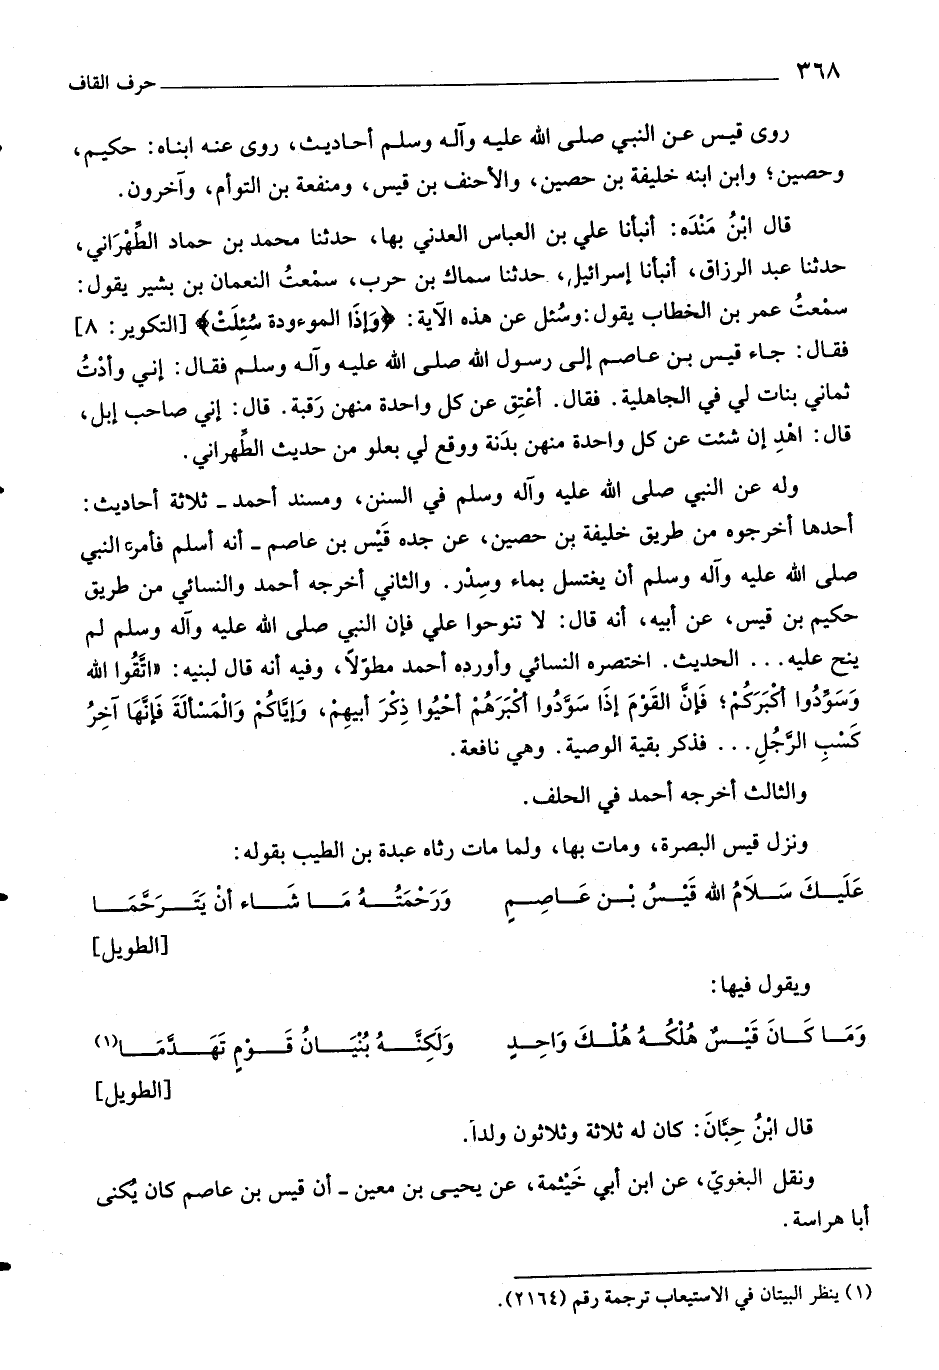 ٣٦٨ حرف القاف
روى قيس عن النبي صلى الله عليه وآله وسلم أحاديث، روى عنه ابناه: حكيم،
وحصين؛ وابن ابنه خليفة بن حصين، والأحنف بن قيس، ومنفعة بن التوأم، وآخرون.
قال ابْنُ مَنْدَه: أنبأنا علي بن العباس العدني بها، حدثنا محمد بن حماد الطِّهْرَاني،
حدثنا عبد الرزاق، أنبأنا إسرائيل، حدثنا سماك بن حرب، سمْعتُ النعمان بن بشير يقول:
سمْعتُ عمر بن الخطاب يقول: وسُئل عن هذه الآية: ﴿وَإذَا الموءودة سُئِلَتْ﴾ [التكوير: ٨]
فقال: جاء قيس بن عاصم إلى رسول الله صلى الله عليه وآله وسلم فقال: إني وأدْتُ
ثماني بنات لي في الجاهلية. فقال. أعْتِق عن كل واحدة منهن رَقبة. قال: إني صاحب إبل،
قال: اهْدِ إن شئت عن كل واحدة منهن بدَنة ووقع لي بعلو من حديث الطِّهراني.
وله عن النبي صلى الله عليه وآله وسلم في السنن، ومسند أحمد ـ ثلاثة أحاديث:
أحدها أخرجوه من طريق خليفة بن حصين، عن جده قَيْس بن عاصم ـ أنه أسلم فأمره النبي
صلى الله عليه وآله وسلم أن يغتسل بماء وسِدْر. والثاني أخرجه أحمد والنسائي من طريق
حكيم بن قيس، عن أبيه، أنه قال: لا تنوحوا علي فإن النبي صلى الله عليه وآله وسلم لم
ينح عليه... الحديث. اختصره النسائي وأورده أحمد مطوّلاً، وفيه أنه قال لبنيه: «اتَّقُوا الله
وَسَوِّدُوا أكْبَرَكُمْ؛ فَإنَّ القَوْمَ إذَا سَوَّدُوا أكْبَرَهُمْ أحْيُوا ذِكْرَ أبيهِمْ، وَإيَّاكُمْ وَالْمَسْألَةَ فَإنَّهَا آخِرُ
كَسْبِ الرَّجُلِ... فذكر بقية الوصية. وهي نافعة.
والثالث أخرجه أحمد في الحلف.
ونزل قيس البصرة، ومات بها، ولما مات رثاه عبدة بن الطيب بقوله:
عَلَيكَ سَلاَمُ الله قَيْسُ بْن عَاصِمٍ وَرَحْمَتُهُ مَا شَاء أنْ يَتَرَحَّمَا
[الطويل]
ويقول فيها:
وَمَا كَانَ قَيْسٌ هُلْكُهُ هُلْكَ وَاحِدٍ وَلَكِنَّهُ بُنْيَانُ قَوْمٍ تَهَدَّمَا(١)
[الطويل]
قال ابْنُ حِبَّانَ: كان له ثلاثة وثلاثون ولداً.
ونقل البغويّ، عن ابن أبي خَيْثمة، عن يحيى بن معين ـ أن قيس بن عاصم كان يُكنى
أبا هراسة.
(١) ينظر البيتان في الاستيعاب ترجمة رقم (٢١٦٤).